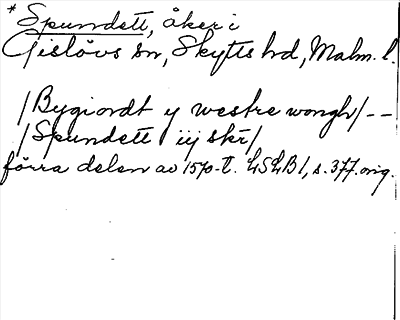 * Spundett, åker i
Gislövs sn, Skytts hd, Malm. l.
/Bygiordt y westre wongh/ --
/Spundett iij skr/
förra delen av 1570-t. LSLB 1, s. 377. orig.